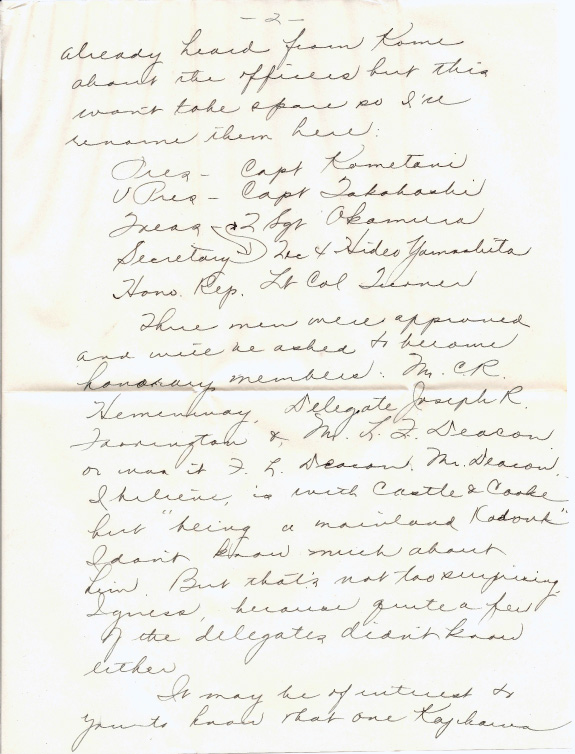 - 2 -
already heard from Kome
about the officers but this
won't take space so I'll
rename them here:
Pres - Capt Kometani
V Pres - Capt Takahashi
Treas - T Sgt Okamura
Secretary - Tec 4 Hideo Yamashita
Hono. Rep. Lt Col Turner
Three men were approved
and will be asked to become
honorary members: Mr. C.R.
Hemenway, Delegate Joseph R.
Farrington & Mr. L. F. Deacon
or was it F. L. Deacon. Mr. Deacon,
I believe, is with Castle & Cooke
but "being a mainland Kotonk"
I don't know much about
him. But that's not too surprising,
I guess, because quite a few
of the delegates didn't know
either
It may be of interest to
you to know that one Kajikawa